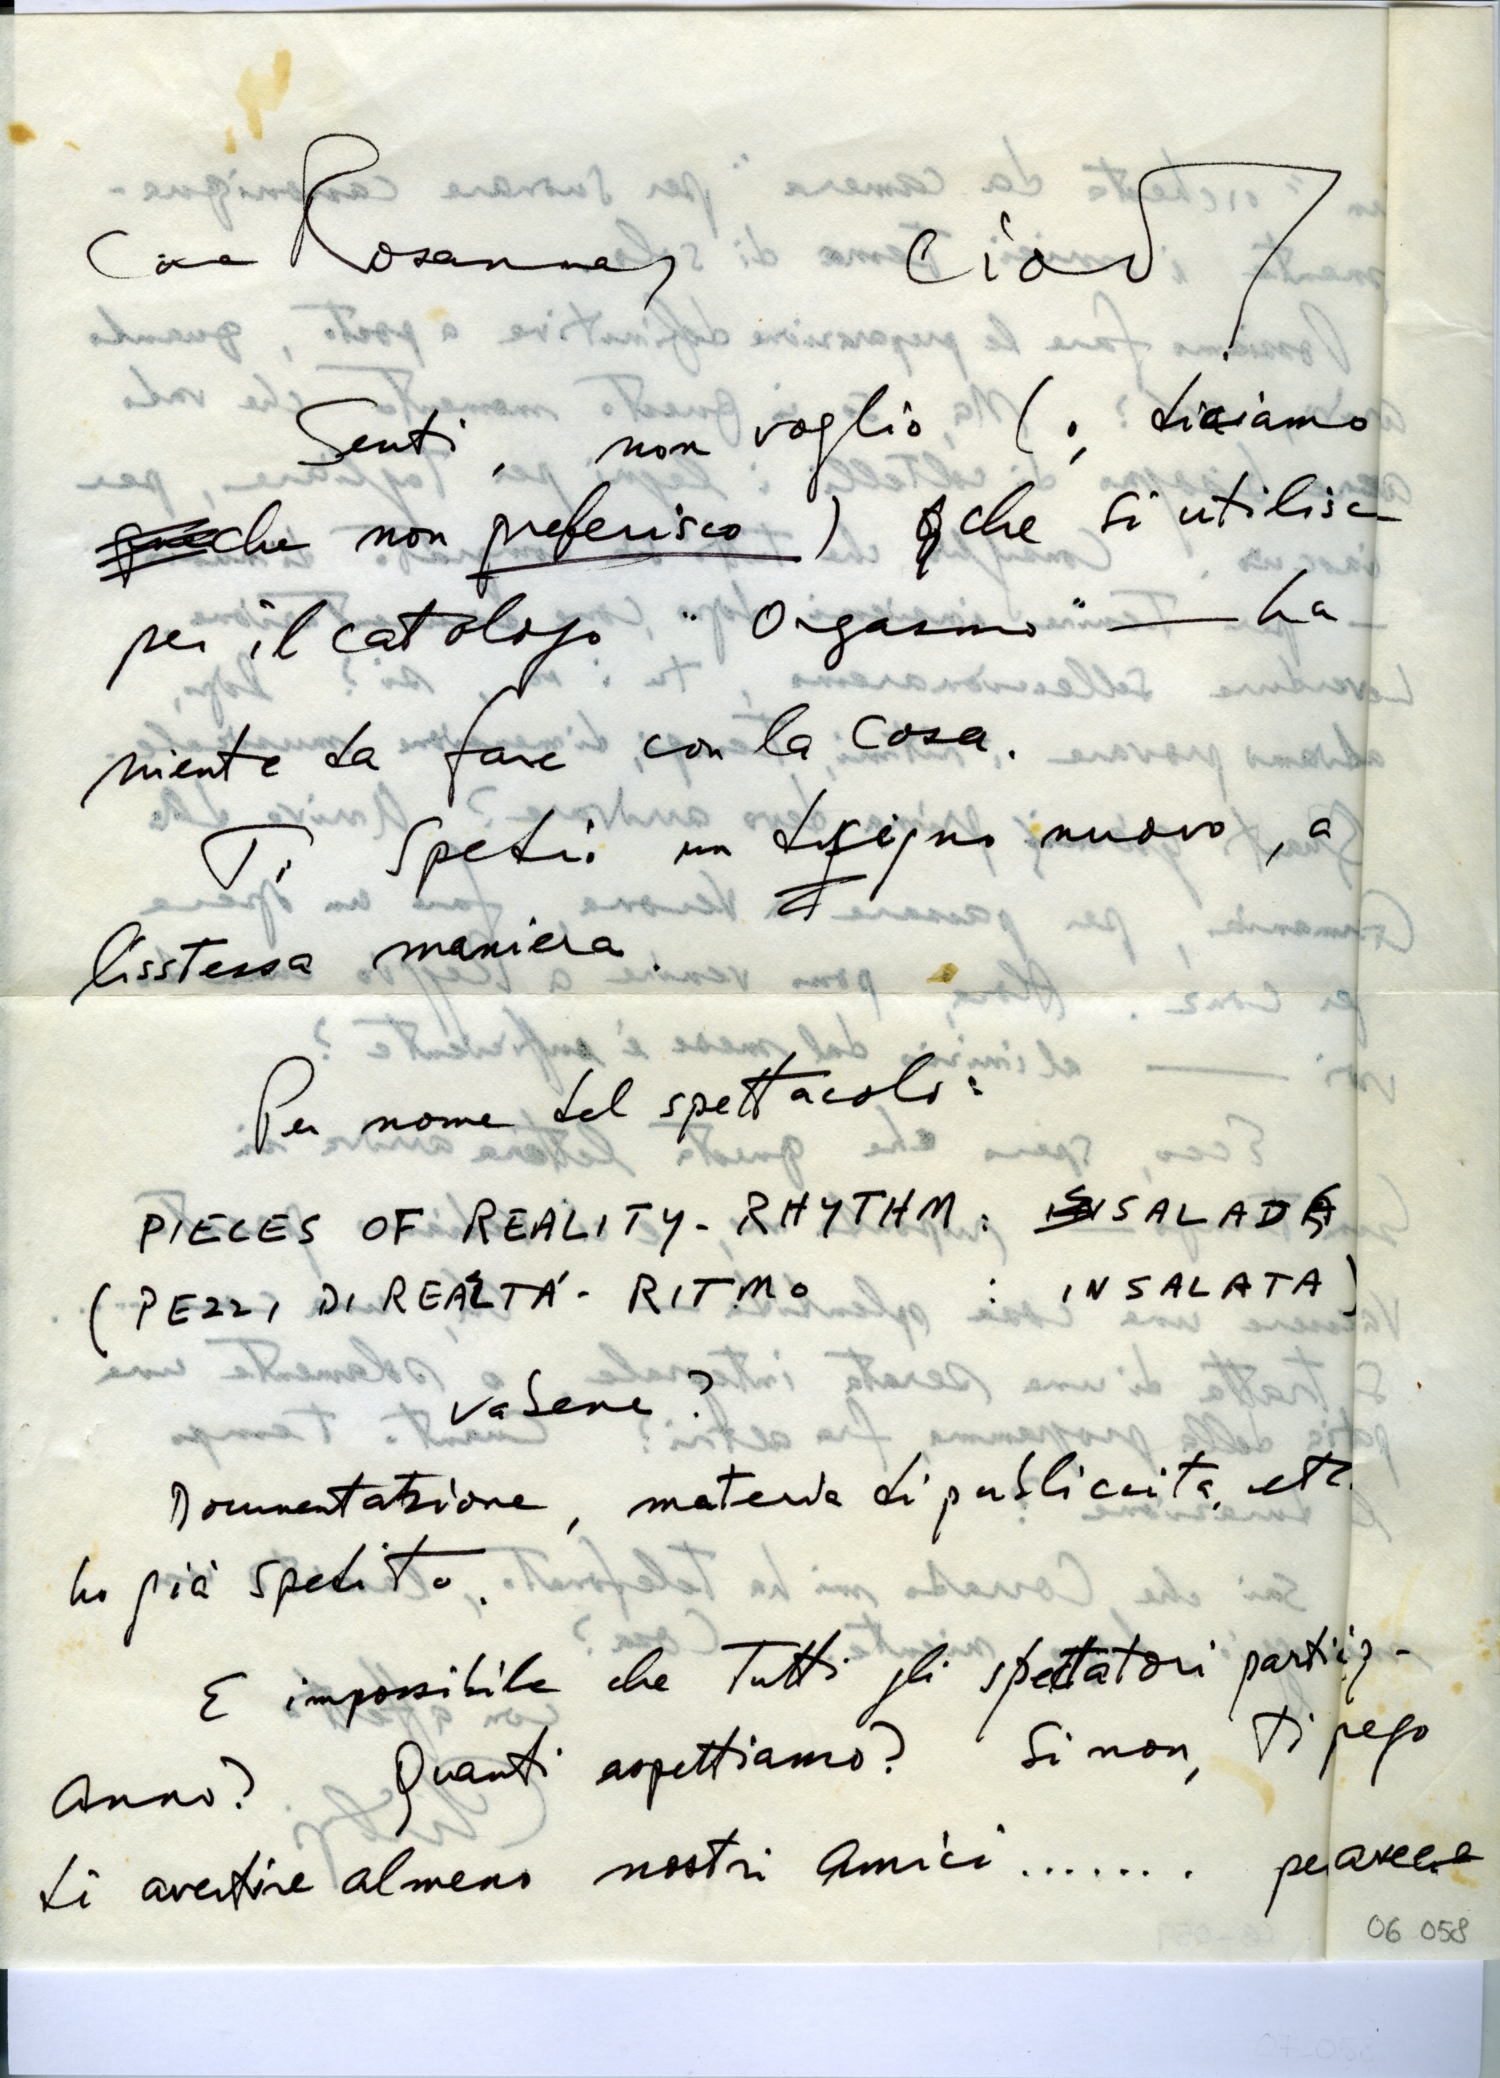 Cara Rosanna, Ciao!
Senti, non voglio (o, diciamo
che non preferisco) che si utilisc
per il catalogo "Orgasmo" — ha
niente da fare con la cosa.
Ti spedii un disigno nuovo, a
l'isstessa maniera.
Per nome del spettacolo:
PIECES OF REALITY-RHYTHM: SALAD
(PEZZI DI REALTÀ-RITMO : INSALATA)
va bene?
Documentatzione, materia di publiccita, etc.
ho già spedito.
E impossibile che tutti gli spettatori particip-
anno? Quanti aspettiamo? Si non, ti pego
di avertire almeno nostri amici ....... per avere
06 058